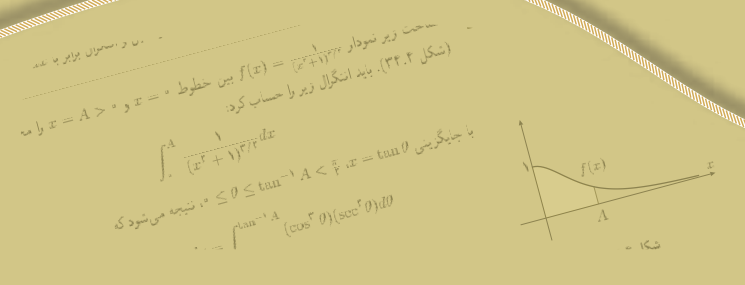 مساحت زیر نمودار f(x) = ۱/(x²+۱)^{۳/۲} بین خطوط x = ۰ و x = A > ۰ را
(شکل ۳۴.۴). باید انتگرال زیر را حساب کرد:
∫₀^A ۱/(x² + ۱)^{۳/۲} dx
با جایگزینی x = tan θ، ۰ ≤ θ ≤ tan⁻¹ A < π/۲، نتیجه می‌شود که
∫^{tan⁻¹ A} (cos³ θ)(sec² θ)dθ
۱
f(x)
x
A